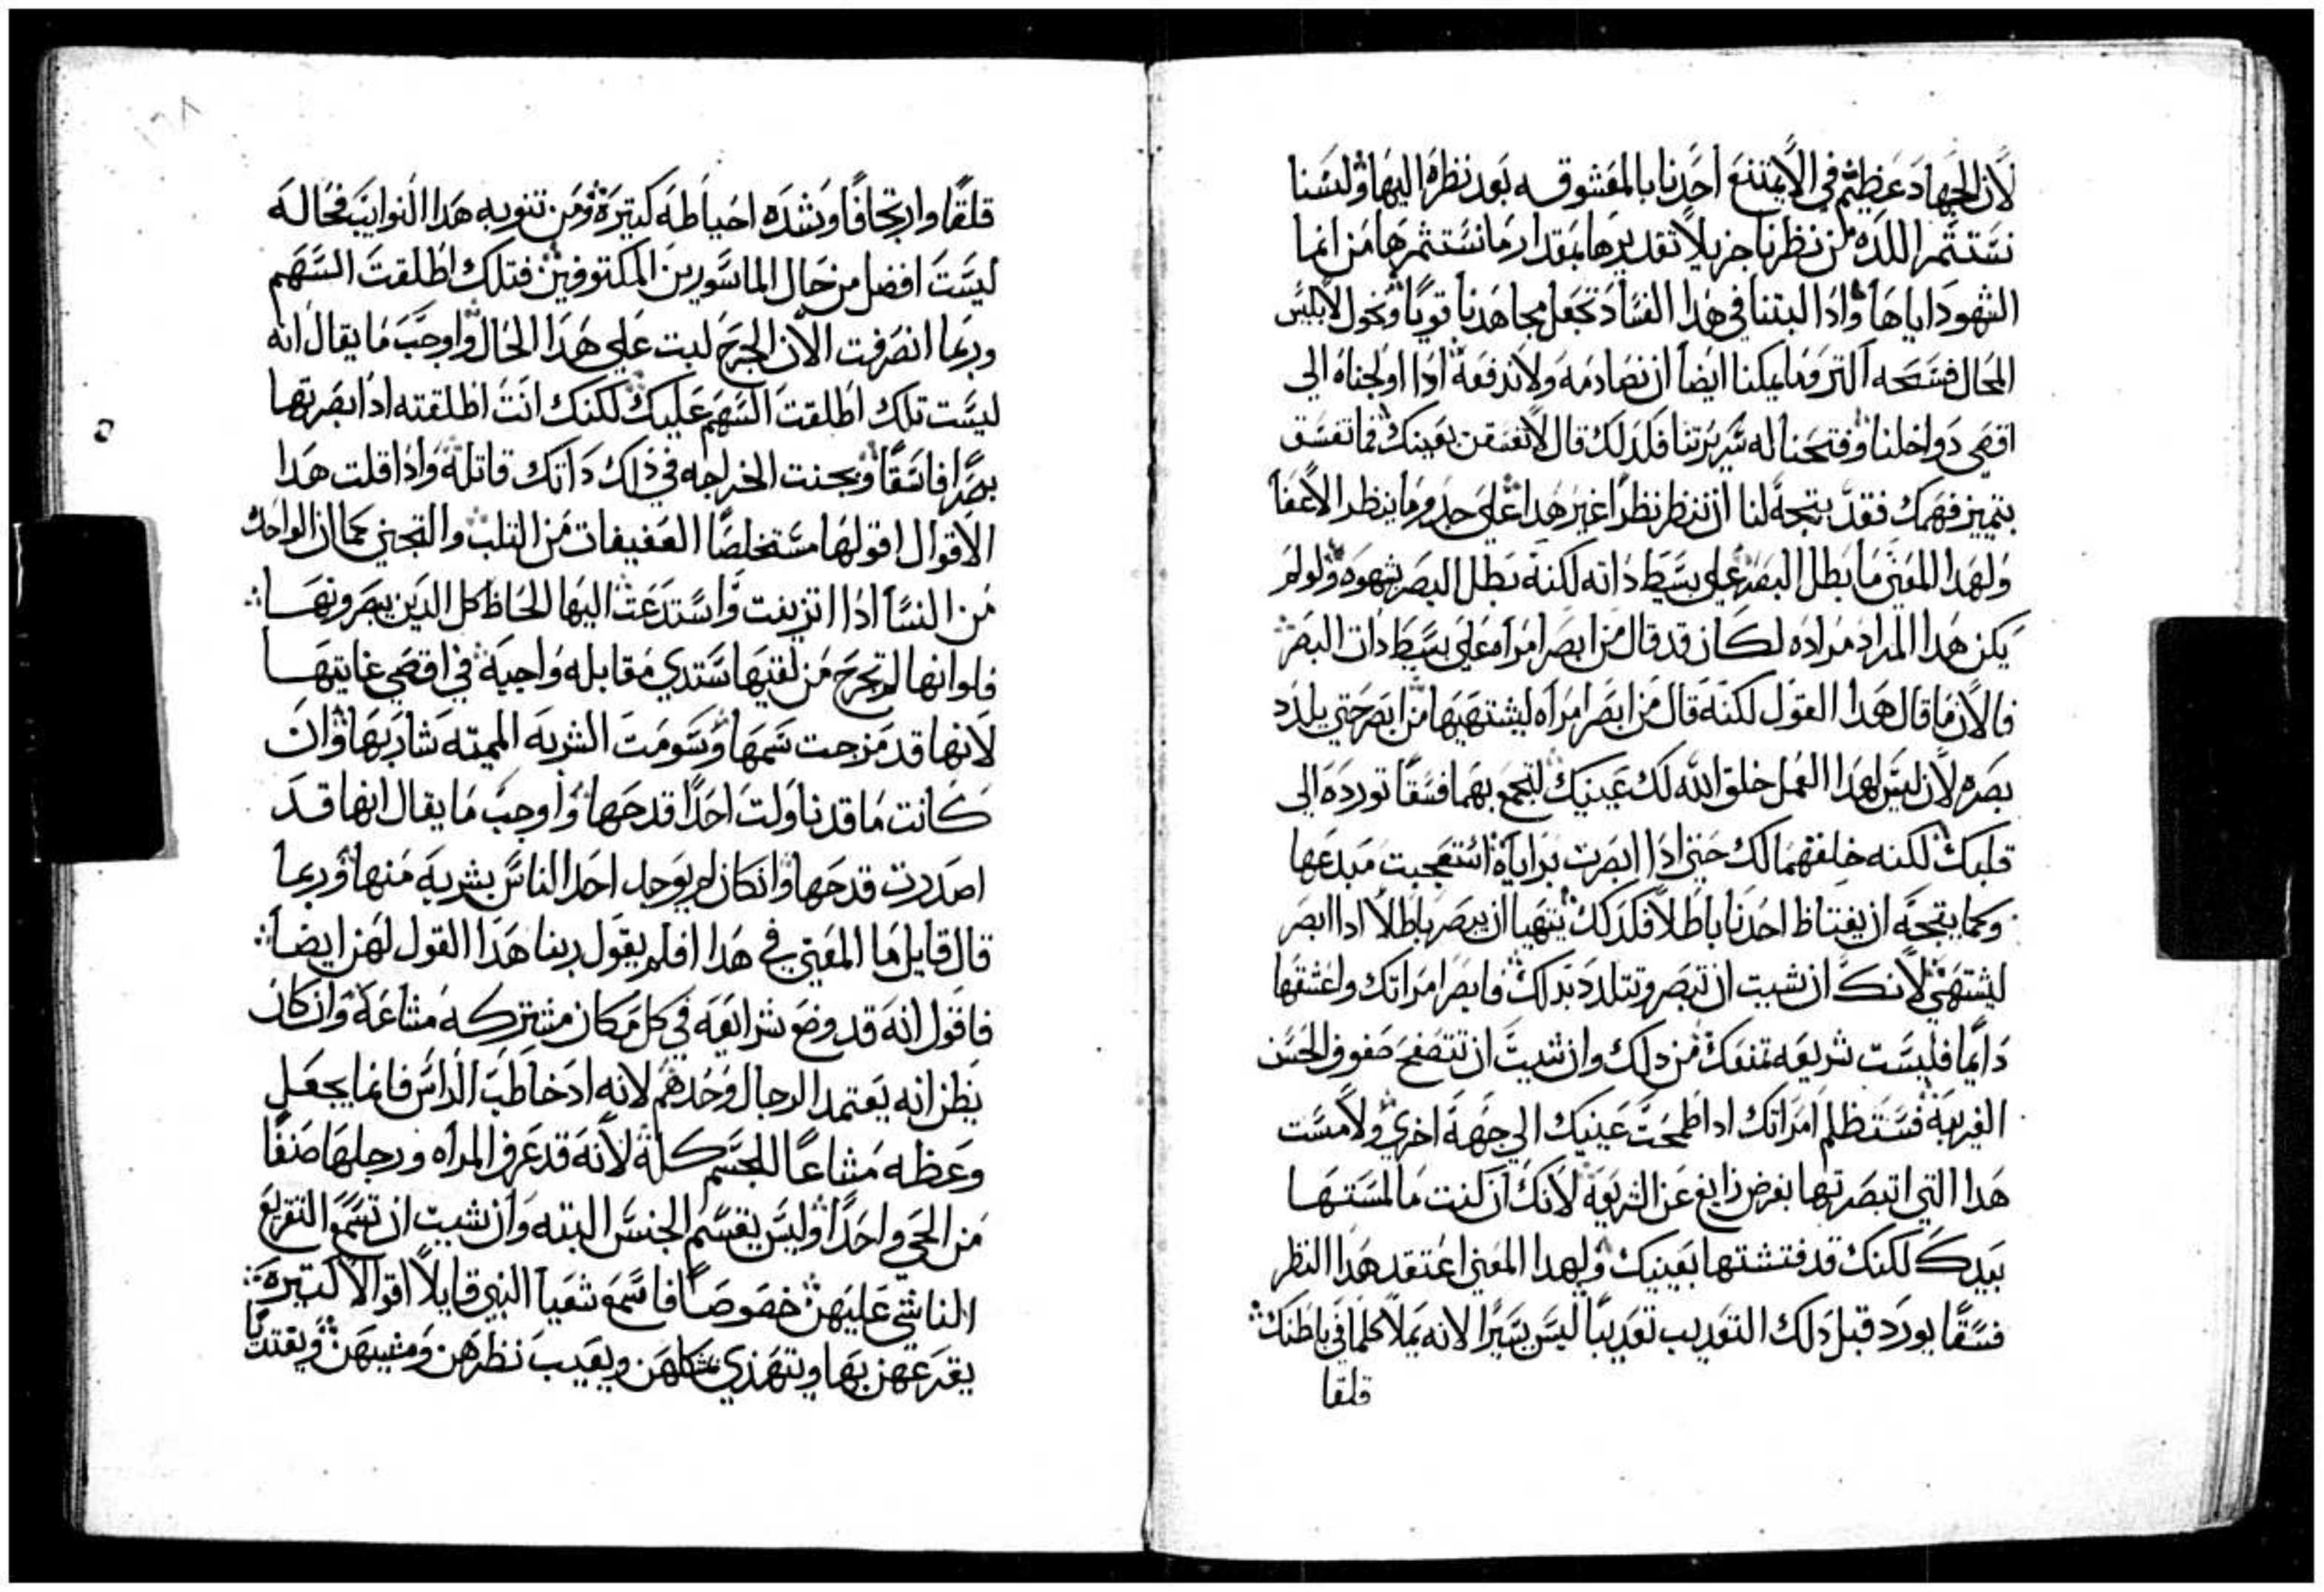 لأن الجهاد عظيم في الا يمتنع احدنا بالمعشوقه بعد نظره اليها ولسنا
نستثمر اللذه من نظرنا جزيلا تقديرها بمقدار ما نستثمرها من انما
الشهود اياها واذا البتنا في هذا الفساد نجعل مجاهدنا قويا ونخول لابليس
المحال فسحه اكثر وما يمكنا ايضا ان نصادمه ولا ندفعه اذا اولجناه الي
اقصي دواخلنا وفتحنا له سريرتنا فلذلك قال لا تفسقن بعينك فما تفسق
بتمييز فهمك فقد يتجه لنا ان ننظر نظرا غير هذا علي حدو ما ينظر الاعفا
ولهذا المعني ما بطل البصر علي بسيط ذاته لكنه بطل البصر بشهوه ولو لم
يكن هذا المراد مراده لكان قد قال من ابصر امراه علي بسيط ذات البصر
فالان ما قال هذا القول لكنه قال من ابصر امراه ليشتهيها من ابصر حتي يلذذ
بصره لان ليس لهذا العمل خلق الله لك عينيك لتجمع بهما فسقا تورده الي
قلبك لكنه خلقهما لك حتي اذا ابصرت براياه استعجبت مبدعها
وكما يتجه ان يغتاظ احدنا باطلا فكذلك يتهيا ان يبصر باطلا اذا ابصر
ليشتهي لانك ان شيت ان تبصر وتتلذذ بذلك فابصر امراتك واعشقها
دايما فليست شريعه تمنعك من ذلك وان شيت ان تتصفح صفوف الحسن
الغريبة فستظلم امراتك اذا طمحت عينيك الي جهة اخري ولامست
هذا التي ابصرتها بغرض زايغ عن الشريعة لانك ان كنت ما لمستها
بيدك لكنك قد فتشتها بعينيك ولهذا المعني اعتقد هذا النظر
فسقا يورد قبل ذلك التعذيب تعذيبا ليس يسيرا لانه يملا كلما في باطنك
قلقا
قلقا وارتجافا وشده احياطه كبيرة ومن تنوبه هذا النوايب فحاله
ليست افضل من حال الماسورين المكتوفين فتلك اطلقت السهم
وربما انصرفت الان الجرح لبت علي هذا الحال واوجب ما يقال انه
ليست تلك اطلقت السهم عليك لكنك انت اطلقته اذا بصرتها
بصرا فاسقا وبحنت الخراجه في ذلك ذاتك قاتلة واذا قلت هذا
الاقوال اقولها مستخلصا العفيفات من الثلب والتجني كما ان الواحد
من النسا اذا اتزينت واستدعت اليها الحاظ كل الذين يبصرونها
فلو انها لم تجرح من لقيها ستدي مقابله واجبة في اقصي غايتها
لانها قد مزجت سمها وسومت الشربه المميته شاربها وان
كانت ما قد ناولت احدا قدحها واوجب ما يقال انها قد
اصدرت قدحها وان كان لم يوجد احد الناس بشربه منها وربما
قال قايل ما المعني في هذا افلم يقول ربنا هذا القول لهن ايضا
فاقول انه قد وضع شرايعه في كل مكان مشتركه مشاعة وان كان
يظن انه يعتمد الرجال وحدهم لانه اذ خاطب الراس فانما يجعل
وعظه مشاعا للجسم كله لانه قد عرف المراه ورجلها صنفا
من الحي واحدا وليس يقسم الجنس البته وان شيت ان تسمع التقريع
الناشي عليهن خصوصا فاسمع شعيا النبي قايلا اقوالا كثيره
يقرعهن بها ويتهذي شكلهن ويعيب نظرهن ومشيهن